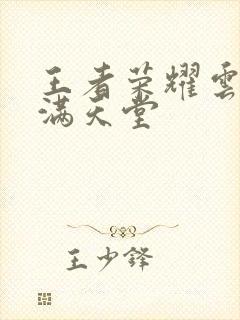 王者荣耀雲
满天堂
王少锋